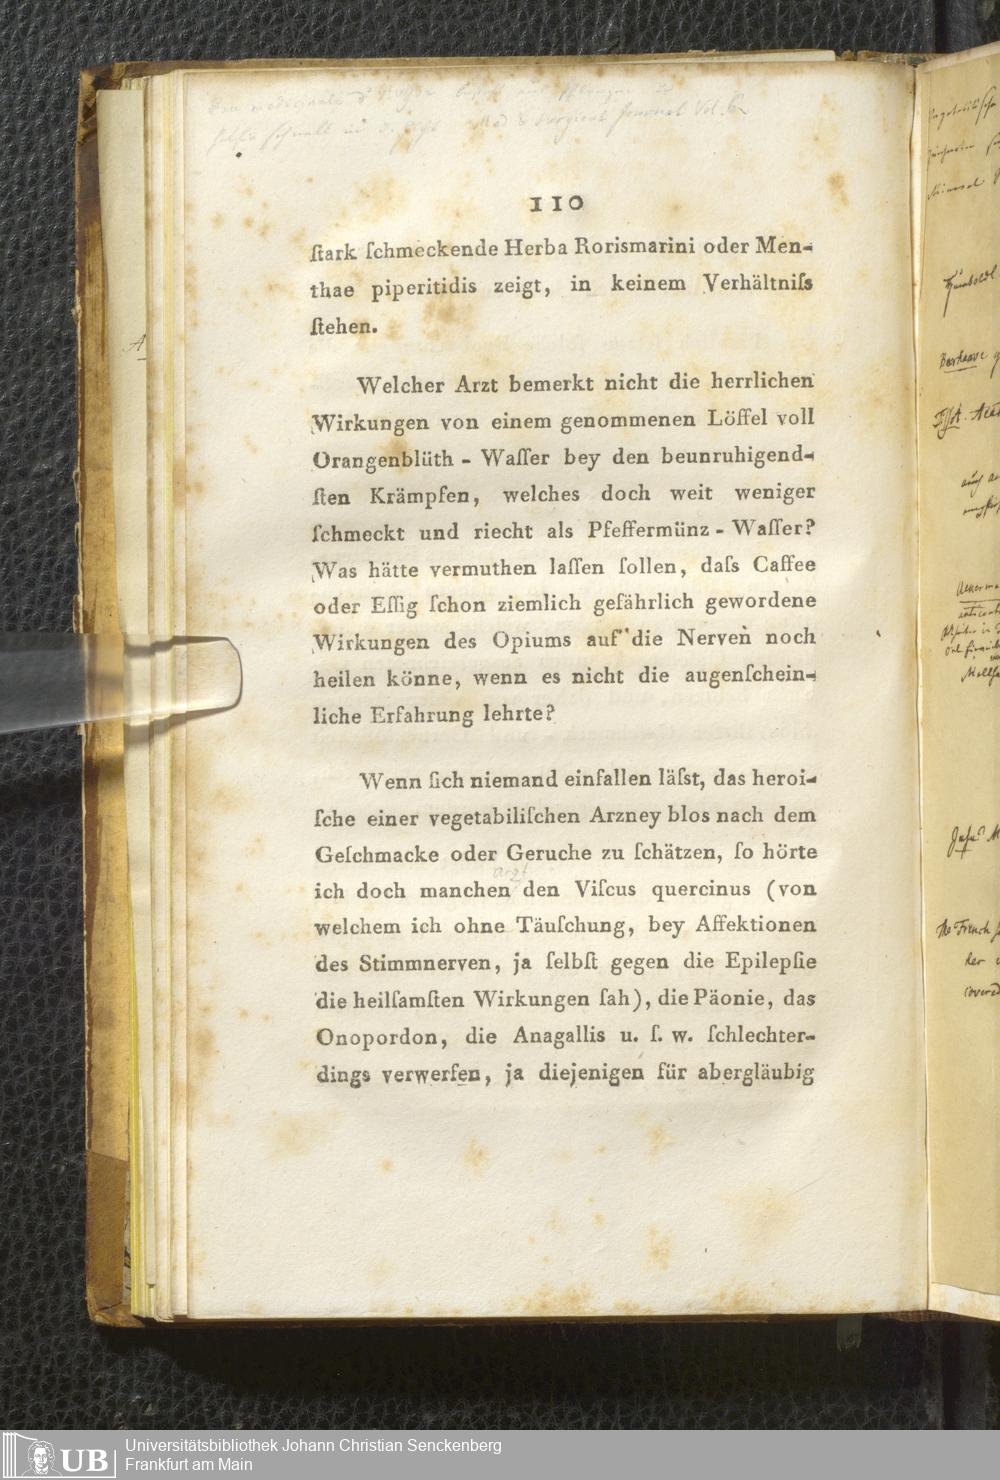 Med & Surgical Journal Vol. 6
110
ſtark ſchmeckende Herba Rorismarini oder Men-
thae piperitidis zeigt, in keinem Verhältniſs
ſtehen.
A
Welcher Arzt bemerkt nicht die herrlichen
Wirkungen von einem genommenen Löffel voll
Orangenblüth - Waſſer bey den beunruhigend-
ſten Krämpfen, welches doch weit weniger
ſchmeckt und riecht als Pfeffermünz - Waſſer?
Was hätte vermuthen laſſen ſollen, daſs Caffee
oder Eſſig ſchon ziemlich gefährlich gewordene
Wirkungen des Opiums auf die Nerven noch
heilen könne, wenn es nicht die augenſchein-
liche Erfahrung lehrte?
Wenn ſich niemand einfallen läſst, das heroi-
ſche einer vegetabiliſchen Arzney blos nach dem
Geſchmacke oder Geruche zu ſchätzen, ſo hörte
Arzt
ich doch manchen den Viſcus quercinus (von
welchem ich ohne Täuſchung, bey Affektionen
des Stimmnerven, ja ſelbſt gegen die Epilepſie
die heilſamſten Wirkungen ſah), die Päonie, das
Onopordon, die Anagallis u. ſ. w. ſchlechter-
dings verwerfen, ja diejenigen für abergläubig
Humboldt
The French
covered
UB
Universitätsbibliothek Johann Christian Senckenberg
Frankfurt am Main